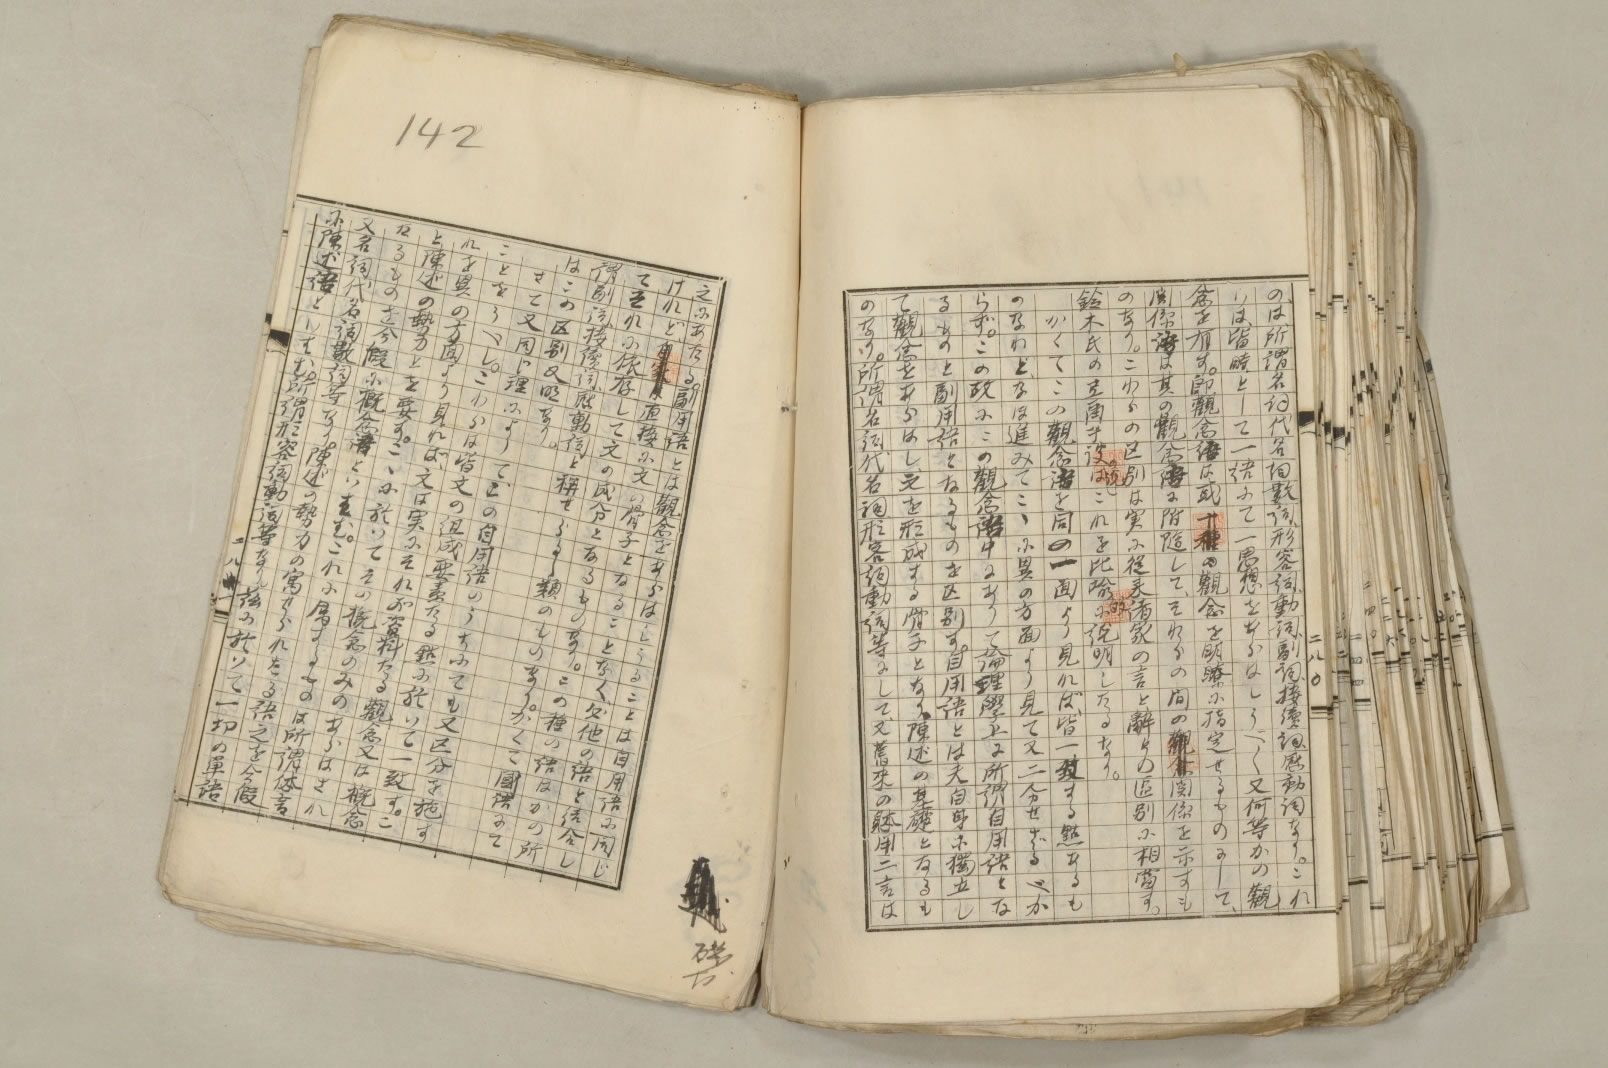 のは所謂名詞代名詞數詞形容詞動詞副詞接續詞感動詞なり。これ
らは皆時として一語にて一思想をあらはしうべく又何等かの觀
念を有す。即觀念語は或一種の觀念を明瞭に指定せるものにして、
関係語は其の觀念語に附隨して、それらの间の関係を示すも
のなり。こわらの区別は実に従来諸家の言と辭との區別に相當す。
鈴木氏の
説はこれを比喩に説明したるなり。
かくてこの觀念語を同の一面より見れば、皆一致する點あるも
のなれど、なほ進みてこゝに異の方面より見て又二分せざるべか
らず。この故にこの觀念語中にありて論理學上に所謂自用語とな
るものと副用語となるものとを区別す。自用語とは夫自身に獨立し
て觀念をあらはし之を形成する骨子となり、陳述の基礎となるも
のなり。所謂名詞代名詞形容詞動詞等にして、又舊来の躰用二言は
二八〇
142
之にあたる。副用語とは觀念をあらはしうることは自用語に同じ
けれど、直接に文の骨子となることなく、必他の語と結合し
てそれに依存して文の成分となるものなり。この種の語はかの所
謂副詞接續詞感動詞と称せらるゝ類のものなり。かくて國語にて
はこの区別又明なり。
さて又同じ理によりて上の自用語のうちにても又区分を施す
ことをうべし。これらは皆文の组成要素たる點に於いて一致す。こ
れを異の方面より見れば、文は実にそれが資料たる觀念又は概念
と陳述の勢力とを要す。こゝに於いてその概念のみのあらはされ
たるものを今假に概念語といはむ。これに属するものは所謂体言
又名詞代名詞數詞等なり。陳述の勢力の寓せられたる語之を今假
に陳述語といはむ。所謂形容詞動詞等なり。茲に於いて一切の單語
二八
礎